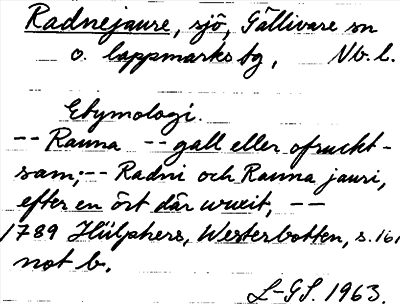 Radnejaure, sjö, Gällivare sn
o. lappmarks tg, Nb. l.
Etymologi.
-- Rauna -- gall eller ofrukt-
sam;-- Radni och Rauna jauri,
efter en ört där wuxit, --
1789 Hülphers, Westerbotten, s. 161
not b.
L-GS. 1963.